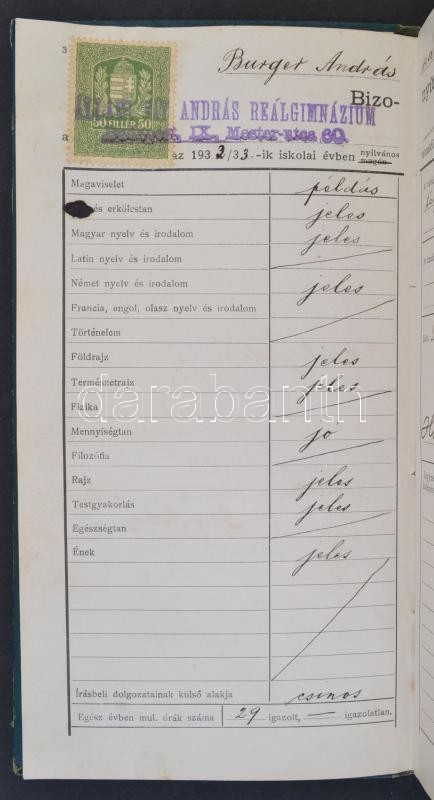 3
Burger András
50 FILLÉR 50
ANDRÁS REÁLGIMNÁZIUM
Bizo-
IX. Mester-utca 60.
a
az 1932/33.-ik iskolai évben nyilvános
magán
Magaviselet példás
és erkölcstan jeles
Magyar nyelv és irodalom jeles
Latin nyelv és irodalom
Német nyelv és irodalom jeles
Francia, angol, olasz nyelv és irodalom
Történelem
Földrajz jeles
Természetrajz jeles
Fizika
Mennyiségtan jo
Filozófia
Rajz jeles
Testgyakorlás jeles
Egészségtan
Ének jeles
Írásbeli dolgozatainak külső alakja csinos
Egész évben mul. órák száma 29 igazolt, — igazolatlan.
darabanth